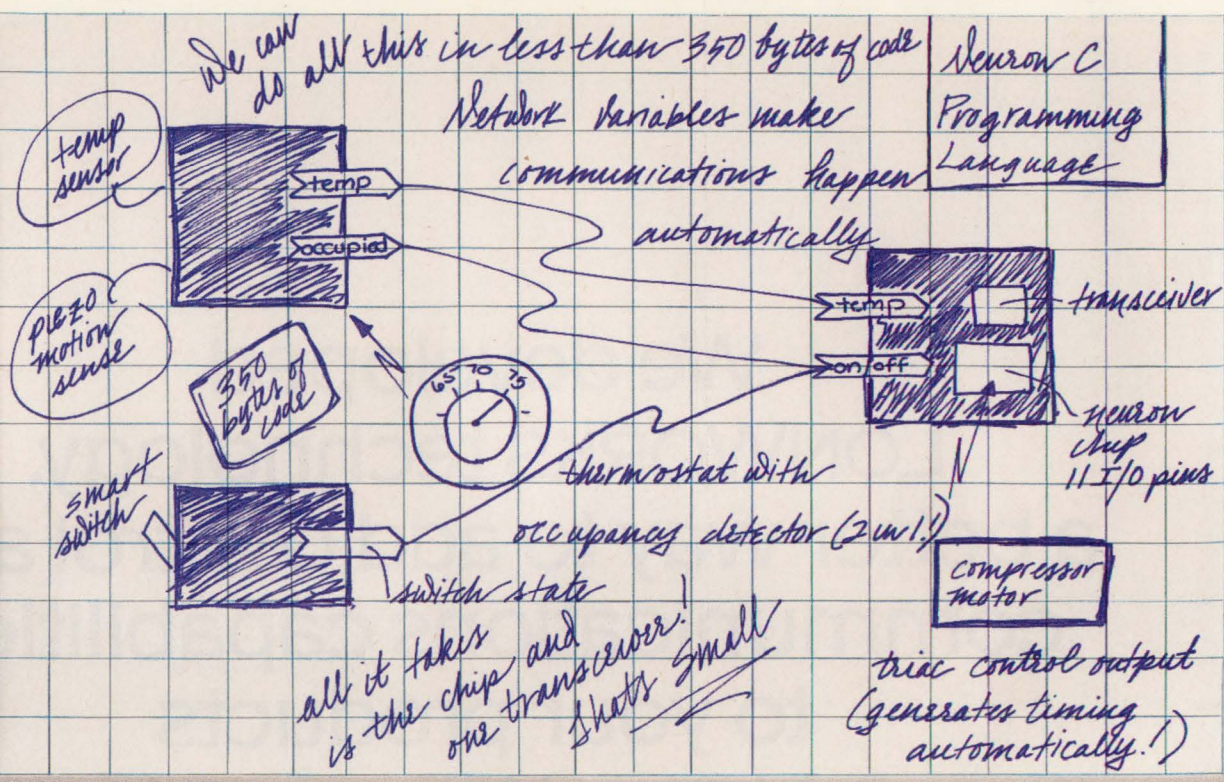 We can
do all this in less than 350 bytes of code
Network variables make
communications happen
automatically
Neuron C
Programming
Language
temp
sensor
temp
occupied
piezo
motion
sense
350
bytes of
code
65 70 75
temp
on/off
transceiver
neuron
chip
11 I/O pins
smart
switch
thermostat with
occupancy detector (2 in 1!)
switch state
compressor
motor
all it takes
is the chip and
one transceiver!
that's small
triac control output
(generates timing
automatically!)